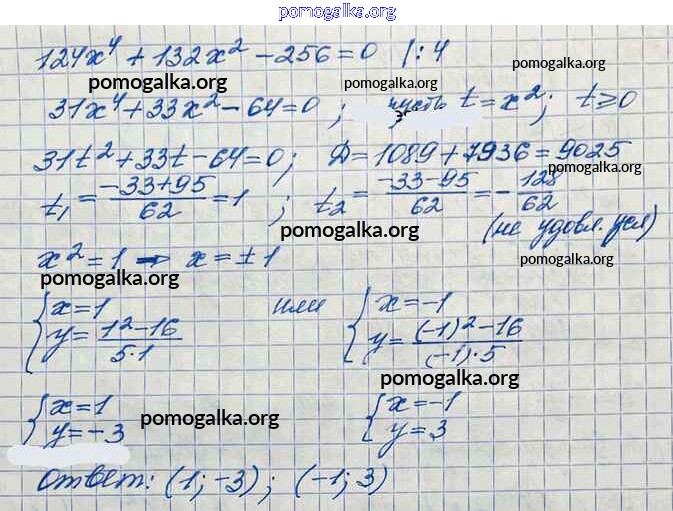 pomogalka.org
124x⁴ + 132x² - 256 = 0 | : 4
pomogalka.org pomogalka.org pomogalka.org
31x⁴ + 33x² - 64 = 0 ; пусть t = x² ; t ≥ 0
31t² + 33t - 64 = 0 ; D = 1089 + 7936 = 9025
pomogalka.org
t₁ = (-33+95)/62 = 1 ; t₂ = (-33-95)/62 = -128/62
pomogalka.org (не удовл. усл)
x² = 1 ⇒ x = ±1
pomogalka.org pomogalka.org
{ x = 1 или { x = -1
{ y = (1² - 16)/(5·1) { y = ((-1)² - 16)/((-1)·5)
pomogalka.org
{ x = 1 { x = -1
pomogalka.org
{ y = -3 { y = 3
Ответ: (1; -3) ; (-1; 3)
pomogalka.org